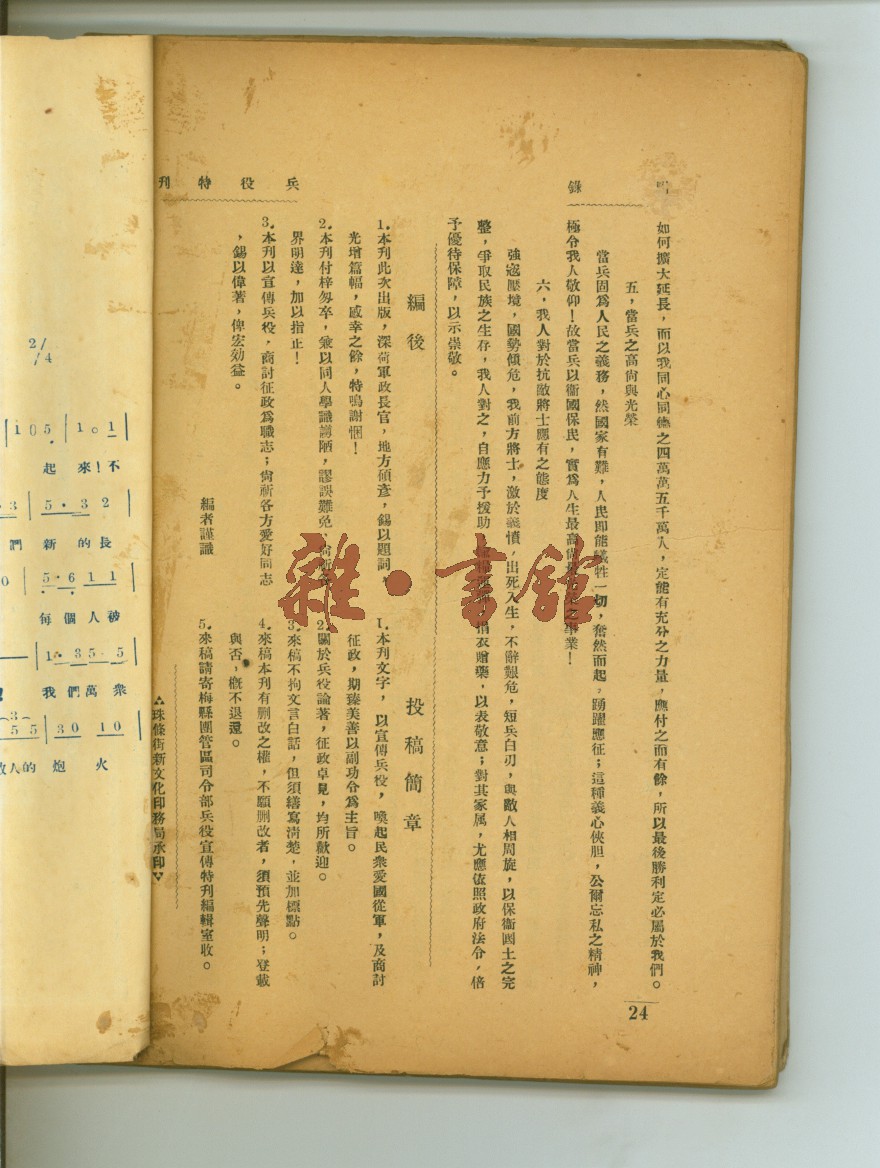 兵役特刊
錄
如何擴大延長，而以我同心同德之四萬萬五千萬人，定能有充分之力量，應付之而有餘，所以最後勝利定必屬於我們。
五，當兵之高尙與光榮
當兵固爲人民之義務，然國家有難，人民即能犧牲一切，奮然而起，踴躍應征；這種義心俠胆，公爾忘私之精神，
極令我人敬仰！故當兵以衞國保民，實爲人生最高尙之事業！
六，我人對於抗敵將士應有之態度
強寇壓境，國勢傾危，我前方將士，激於義憤，出死入生，不辭艱危，短兵白刃，與敵人相周旋，以保衞國土之完
整，爭取民族之生存，我人對之，自應力予援助，捐衣贈藥，以表敬意；對其家属，尤應依照政府法令，倍
予優待保障，以示崇敬。
編後
1.本刊此次出版，深荷軍政長官，地方碩彥，錫以題詞，
光增篇幅，感幸之餘，特鳴謝悃！
2.本刊付梓匆卒，兼以同人學識譾陋，謬誤難免，尙祈各
界明達，加以指止！
3.本刊以宣傳兵役，商討征政爲職志；尙祈各方愛好同志
，錫以偉著，俾宏効益。
編者謹識
投稿簡章
1.本刊文字，以宣傳兵役，喚起民衆愛國從軍，及商討
征政，期臻美善以副功令爲主旨。
2.關於兵役論著，征政卓見，均所歡迎。
3.來稿不拘文言白話，但須繕寫淸楚，並加標點。
4.來稿本刊有删改之權，不願删改者，須預先聲明；登載
與否，槪不退還。
5.來稿請寄梅縣團管區司令部兵役宣傳特刊編輯室收。
珠條街新文化印務局承印
24
2/4
105 1.01
起來！不
3 5.32
們新的長
0 5.611
每個人被
1.35.5
我們萬衆
3
55 30 10
敵人的炮火
雜·書館